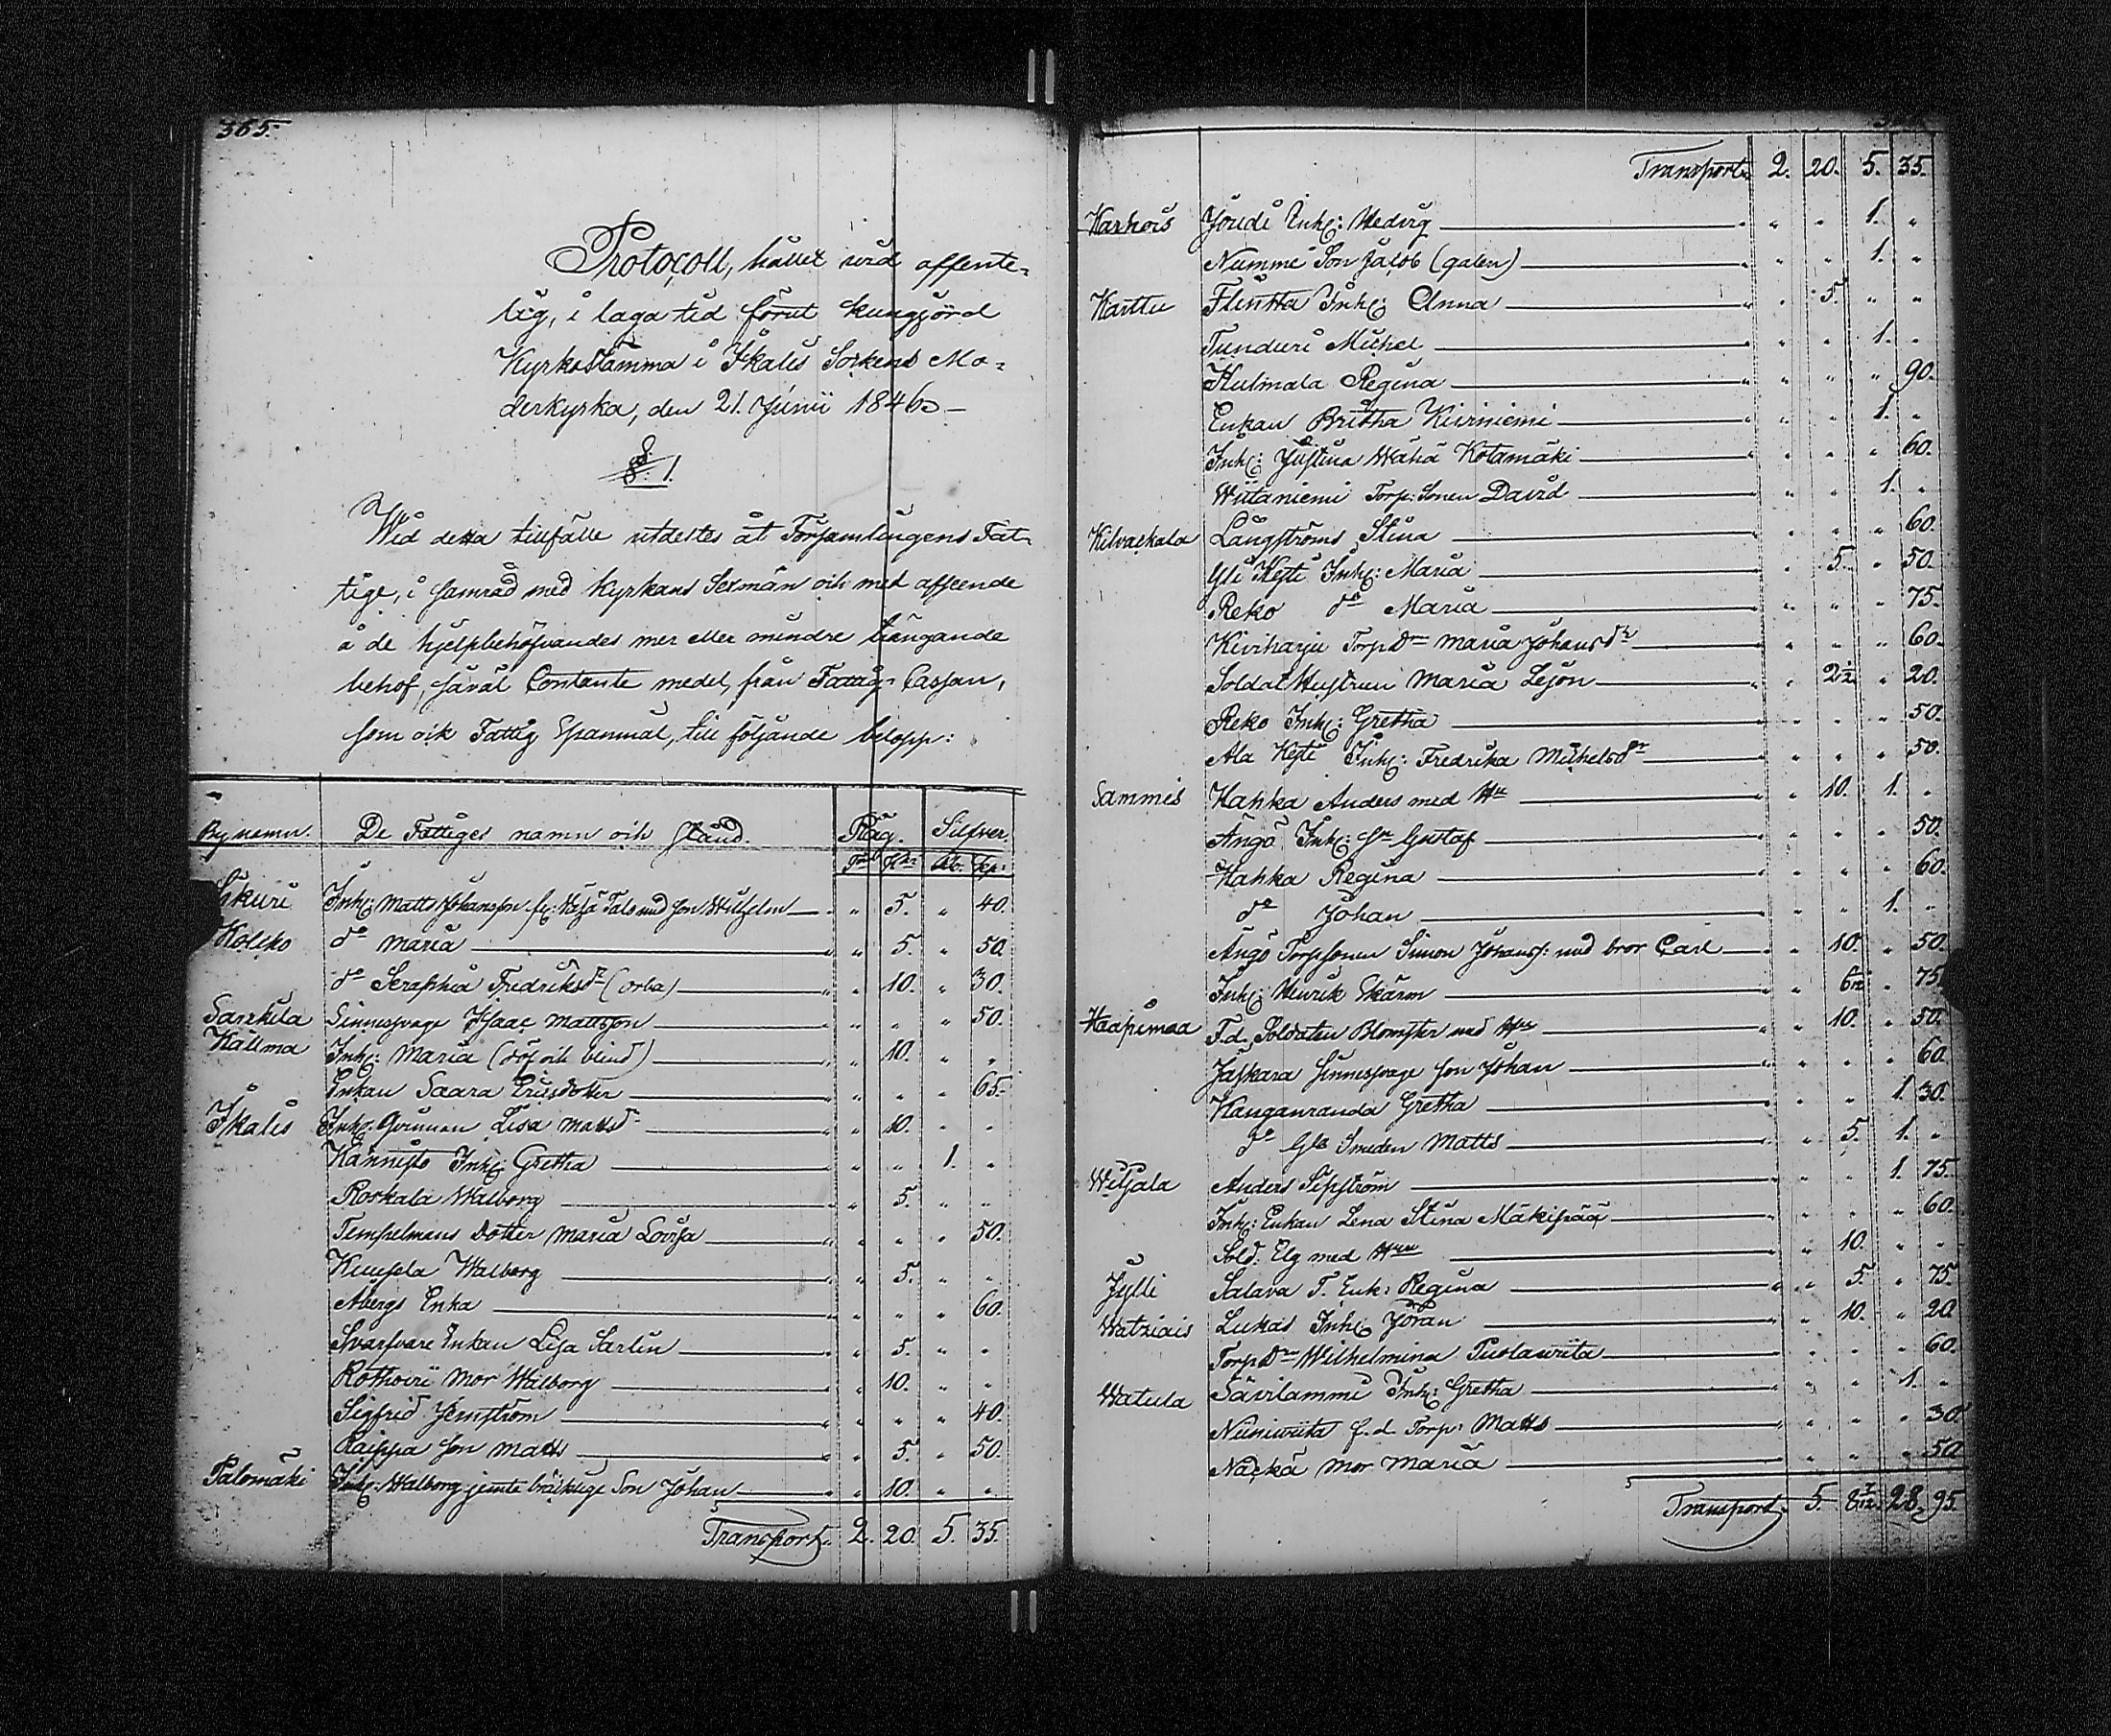 365.
Protocoll, hållet vid offente-
lig, i laga tid förut kungjord
Kyrkostämma i Ikalis Sockens Mo-
derkyrka, den 21. Junii 1846.
§. 1.
Wid detta tillfälle utdeltes åt Församlingens Fat-
tige, i samråd med Kyrkans Sexmän och med afseende
å de hjelpbehöfvandes mer eller mindre trängande
behof, såväl Contante medel, från Fattig-Cassan,
som ock Fattig Spanmål, till följande belopp:
By namn. De Fattiges namn och stånd. Råg. Silfver.
Rub. Kop:
Inh: Matts Johansson med son Wilhelm " 5. " 40.
do Maria " 5. " 50.
do Seraphia Fredriksdr (orba) " 10. " 30.
Sarkila Sinnessvage Isaac Mattsson " " " 50.
Kallma Inh: Maria (döf och blind) " 10. " "
Enkan Saara Ericsdotter " " " 65.
Ikalis Inh: Qvinnan Lisa Mattsdr " 10. " "
Kännistö Inh: Gretha " " 1. "
Roskala Walborg " 5. " "
Tempelmans Dotter Maria Lovisa " " " 50.
Walborg " 5. " "
Åbergs Enka " " " 60.
Svarfvare Enkan Lisa Sarlin " 5. " "
Mor Walborg " 10. " "
Sigfrid Jernström " " " 40.
Raippa son Matts " 5. " 50.
Palomäki Inh: Walborg jemte bräcklige Son Johan " 10. " "
Transport. 2. 20. 5. 35.
Transport. 2. 20. 5. 35.
Karhois Jöudi Inh: Hedvig " " 1. "
Nummi Son Jacob (galen) " " 1. "
Karttu Flinkka Inh: Anna " 5. " "
Tunduri Michel " " 1. "
Hulmala Regina " " " 90.
Enkan Britha Kiviniemi " " 1. "
Inh: Justina Wähä Kotamäki " " " 60.
Wiitaniemi Torp: Sonen David " " 1. "
Kilvackala Långströms Stina " " " 60.
Yli Kesti Inh: Maria " 5. " 50.
Reko do Maria " " " 75.
Kiviharju Torp Dr Maria Johansdr " " " 60.
Soldat Hustrun Maria Lejon " 2½ " 20.
Reko Inh: Gretha " " " 50.
Ala Kesti Inh: Fredrika Michelsdr " " " 50.
Sammis Hahka Anders med Hu " 10. 1. "
Ängö Inh: Sn Gustaf " " " 50.
Hahka Regina " " " 60.
do Johan " " 1. "
Ängö Torpsonen Simon Johanss: med bror Carl " 10. " 50.
Inh: Henrik Skärm " " 75.
Haapimaa F.d. Soldaten Blomster med Hu " 10. " 50.
Jaskara Sinnessvage son Johan " " " 60.
Kanganranda Gretha " " 1. 30.
do Gle Smeden Matts " 5. 1. "
Wiljala Anders Sipström " " 1. 75.
Inh: Enkan Lena Stina Mäkipää " " " 60.
Sold: Elg med Hun " 10. " "
Jylli Salava T. Enk: Regina " 5. " 75.
Watziais Lukas Inh: Jöran " 10. " 20.
Torp Dr Wilhelmina Puolawiita " " " 60.
Watula Savilammi Inh: Gretha " " 1. "
Niiniwiita f.d. Torp: Matts " " " 30.
Näckä Mor Maria " " " 50.
Transport. 5. 8 7/12. 28. 95.